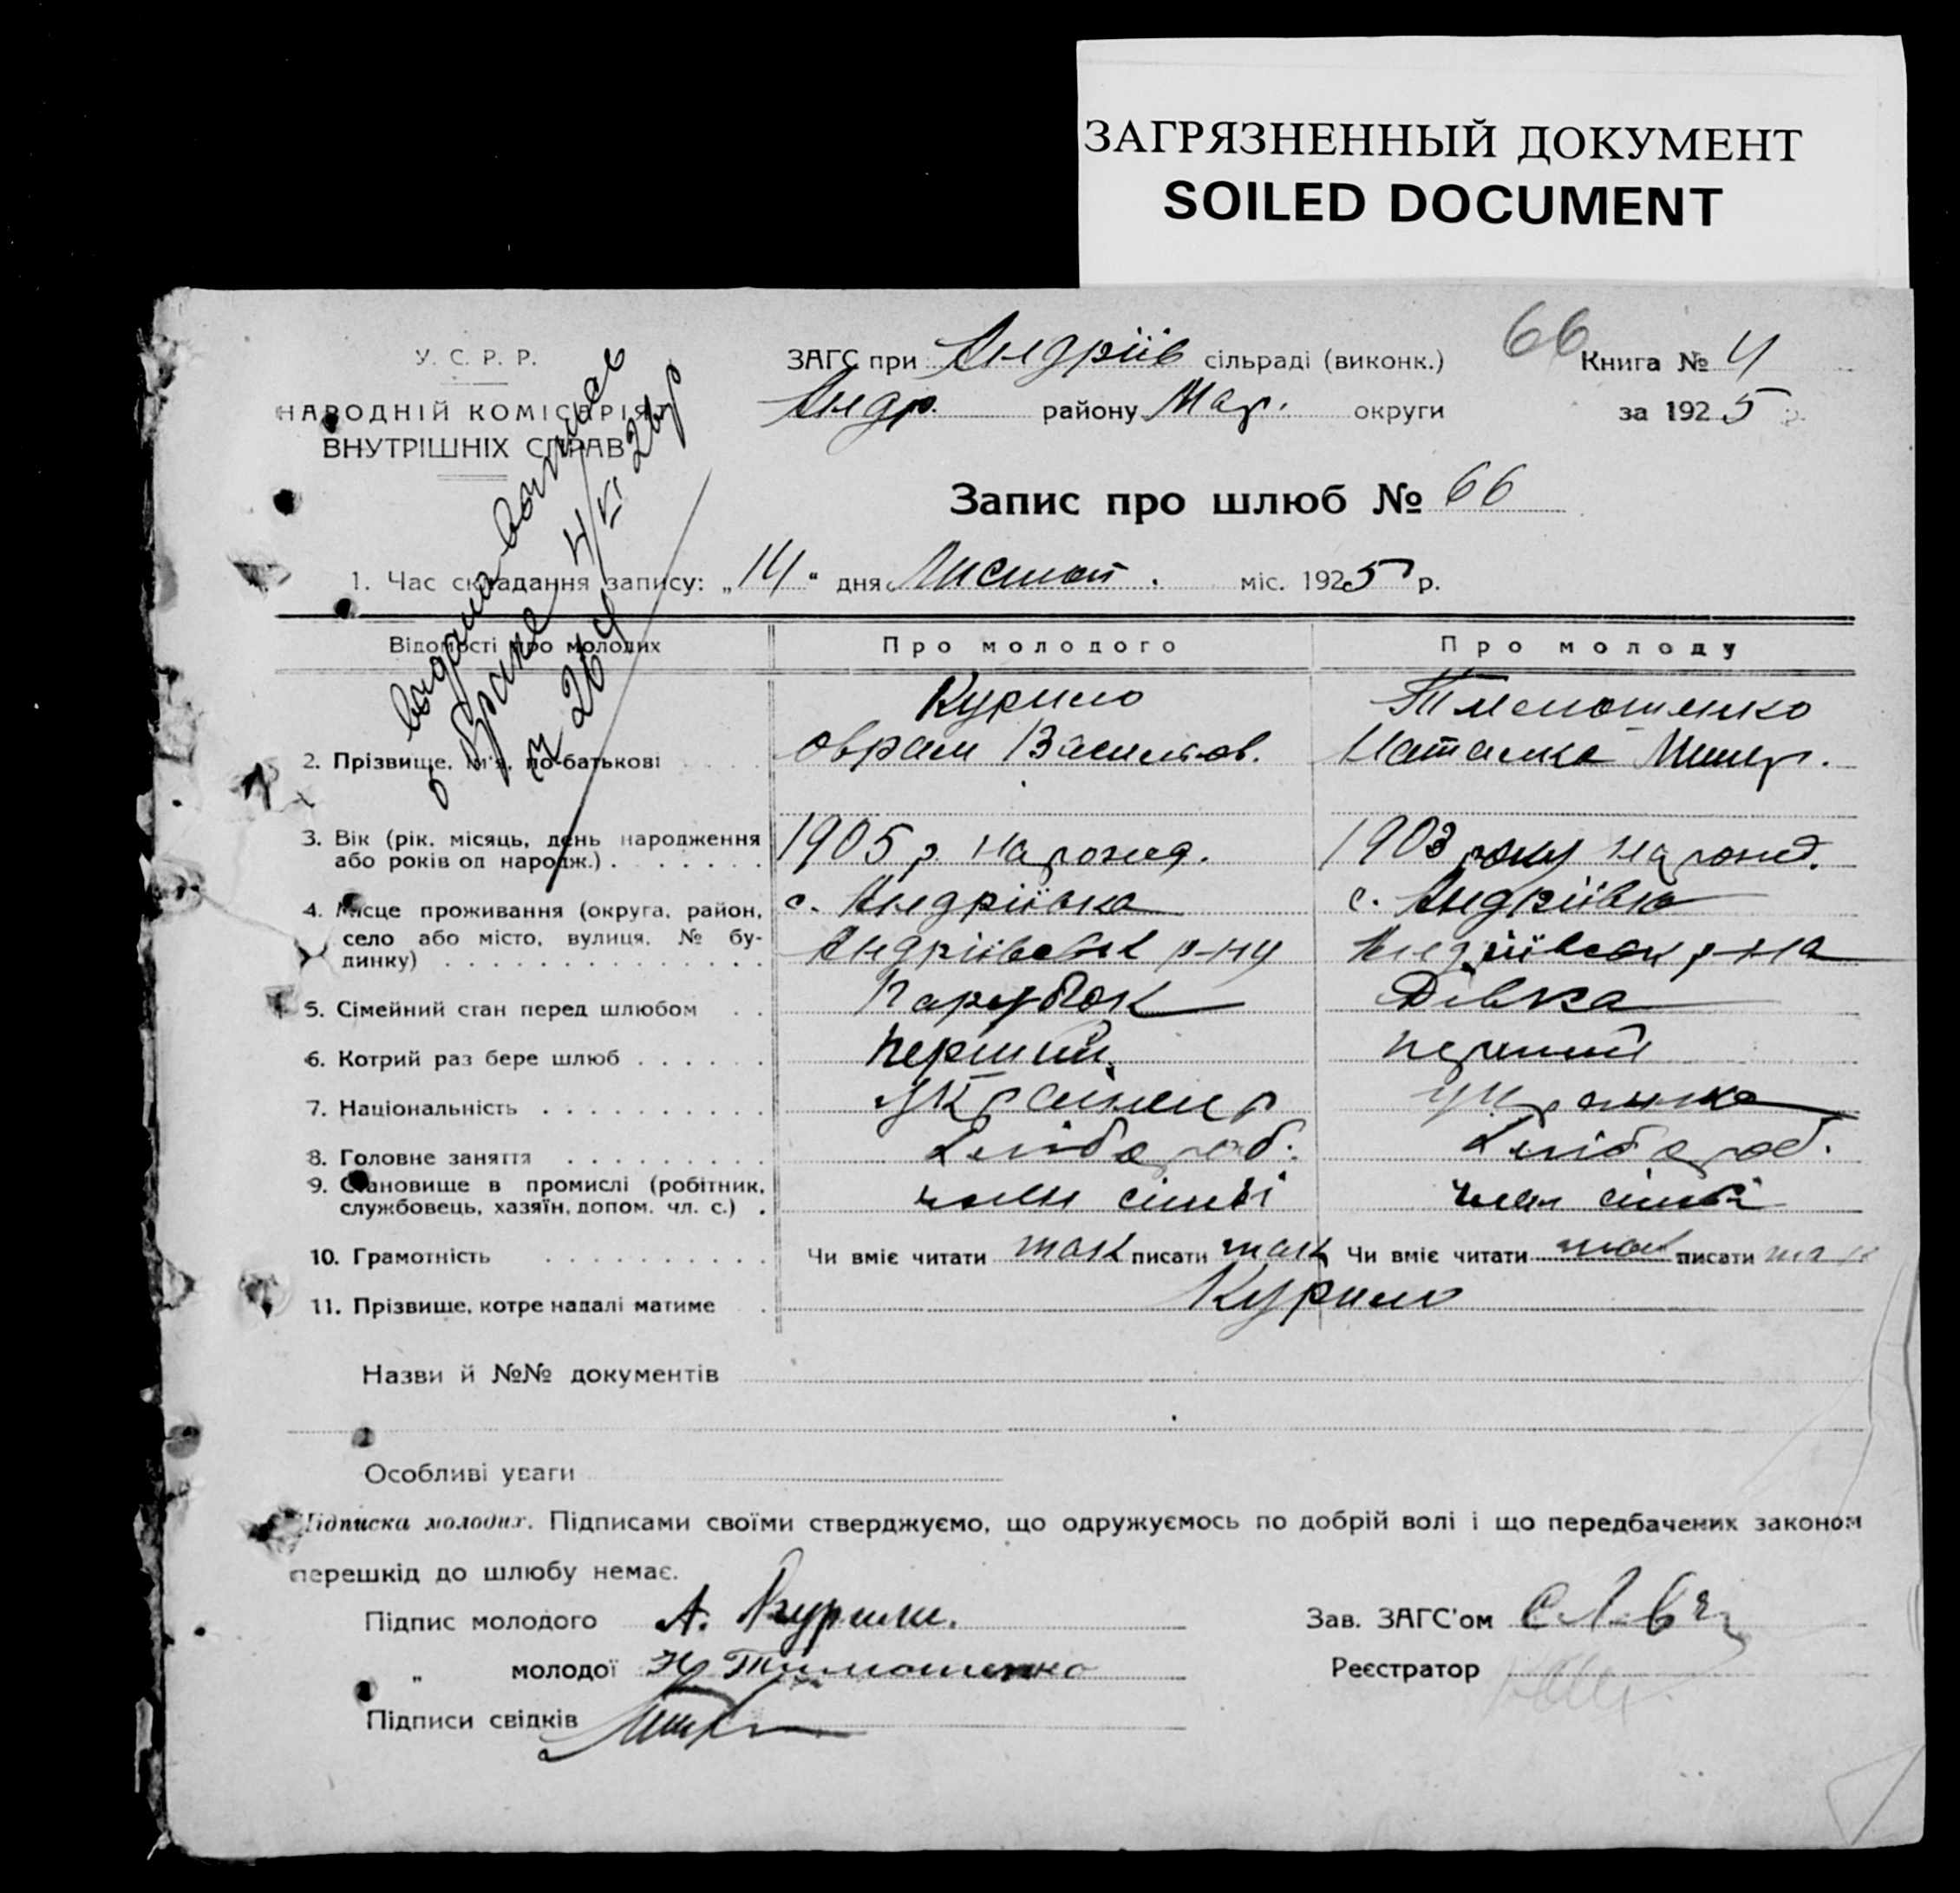 ЗАГРЯЗНЕННЫЙ ДОКУМЕНТ
SOILED DOCUMENT
У. С. Р. Р.
НАРОДНІЙ КОМІСАРІЯТ
ВНУТРІШНІХ СПРАВ
ЗАГС при Андріїв сільраді (виконк.)
66 Книга № 4
Андр. району Мар. округи
за 1925 р.
Запис про шлюб № 66
1. Час складання запису: „14“ дня Листоп. міс. 1925 р.
Відомості про молодих
Про молодого
Про молоду
2. Прізвище, ім'я, по-батькові
Курило
Оврам Васильов.
Тимошенко
Наталка
3. Вік (рік, місяць, день народження
або років од народж.)
1905 р. народж.
1903 року народ.
4. Місце проживання (округа, район,
село або місто, вулиця, № бу-
динку)
с. Андріївка
Андріївськ р-ну
с. Андріївка
Андріївськ р-на
5. Сімейний стан перед шлюбом
Парубок
Дівка
6. Котрий раз бере шлюб
перший
перший
7. Національність
Українец
Українка
8. Головне заняття
Хлібороб.
Хлібороб.
9. Становище в промислі (робітник,
службовець, хазяїн, допом. чл. с.)
член сім'ї
член сім'ї
10. Грамотність
Чи вміє читати так писати так
Чи вміє читати так писати так
11. Прізвище, котре надалі матиме
Курило
Назви й №№ документів
Особливі уваги
Підписка молодих. Підписами своїми стверджуємо, що одружуємось по добрій волі і що передбачених законом
перешкід до шлюбу немає.
Підпис молодого А. Курило.
Зав. ЗАГС'ом
„ молодої Н Тимошенко
Реєстратор
Підписи свідків